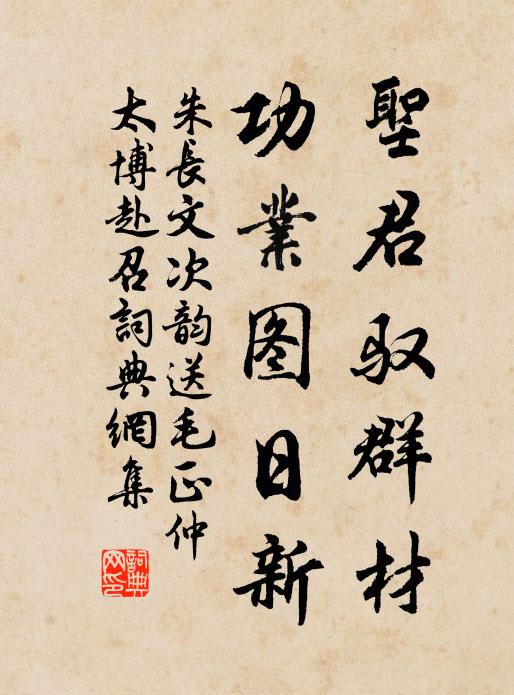 聖君驭群材
功業图日新
朱長文次韵送毛正仲
太博赴召詞典網集
詞典网印